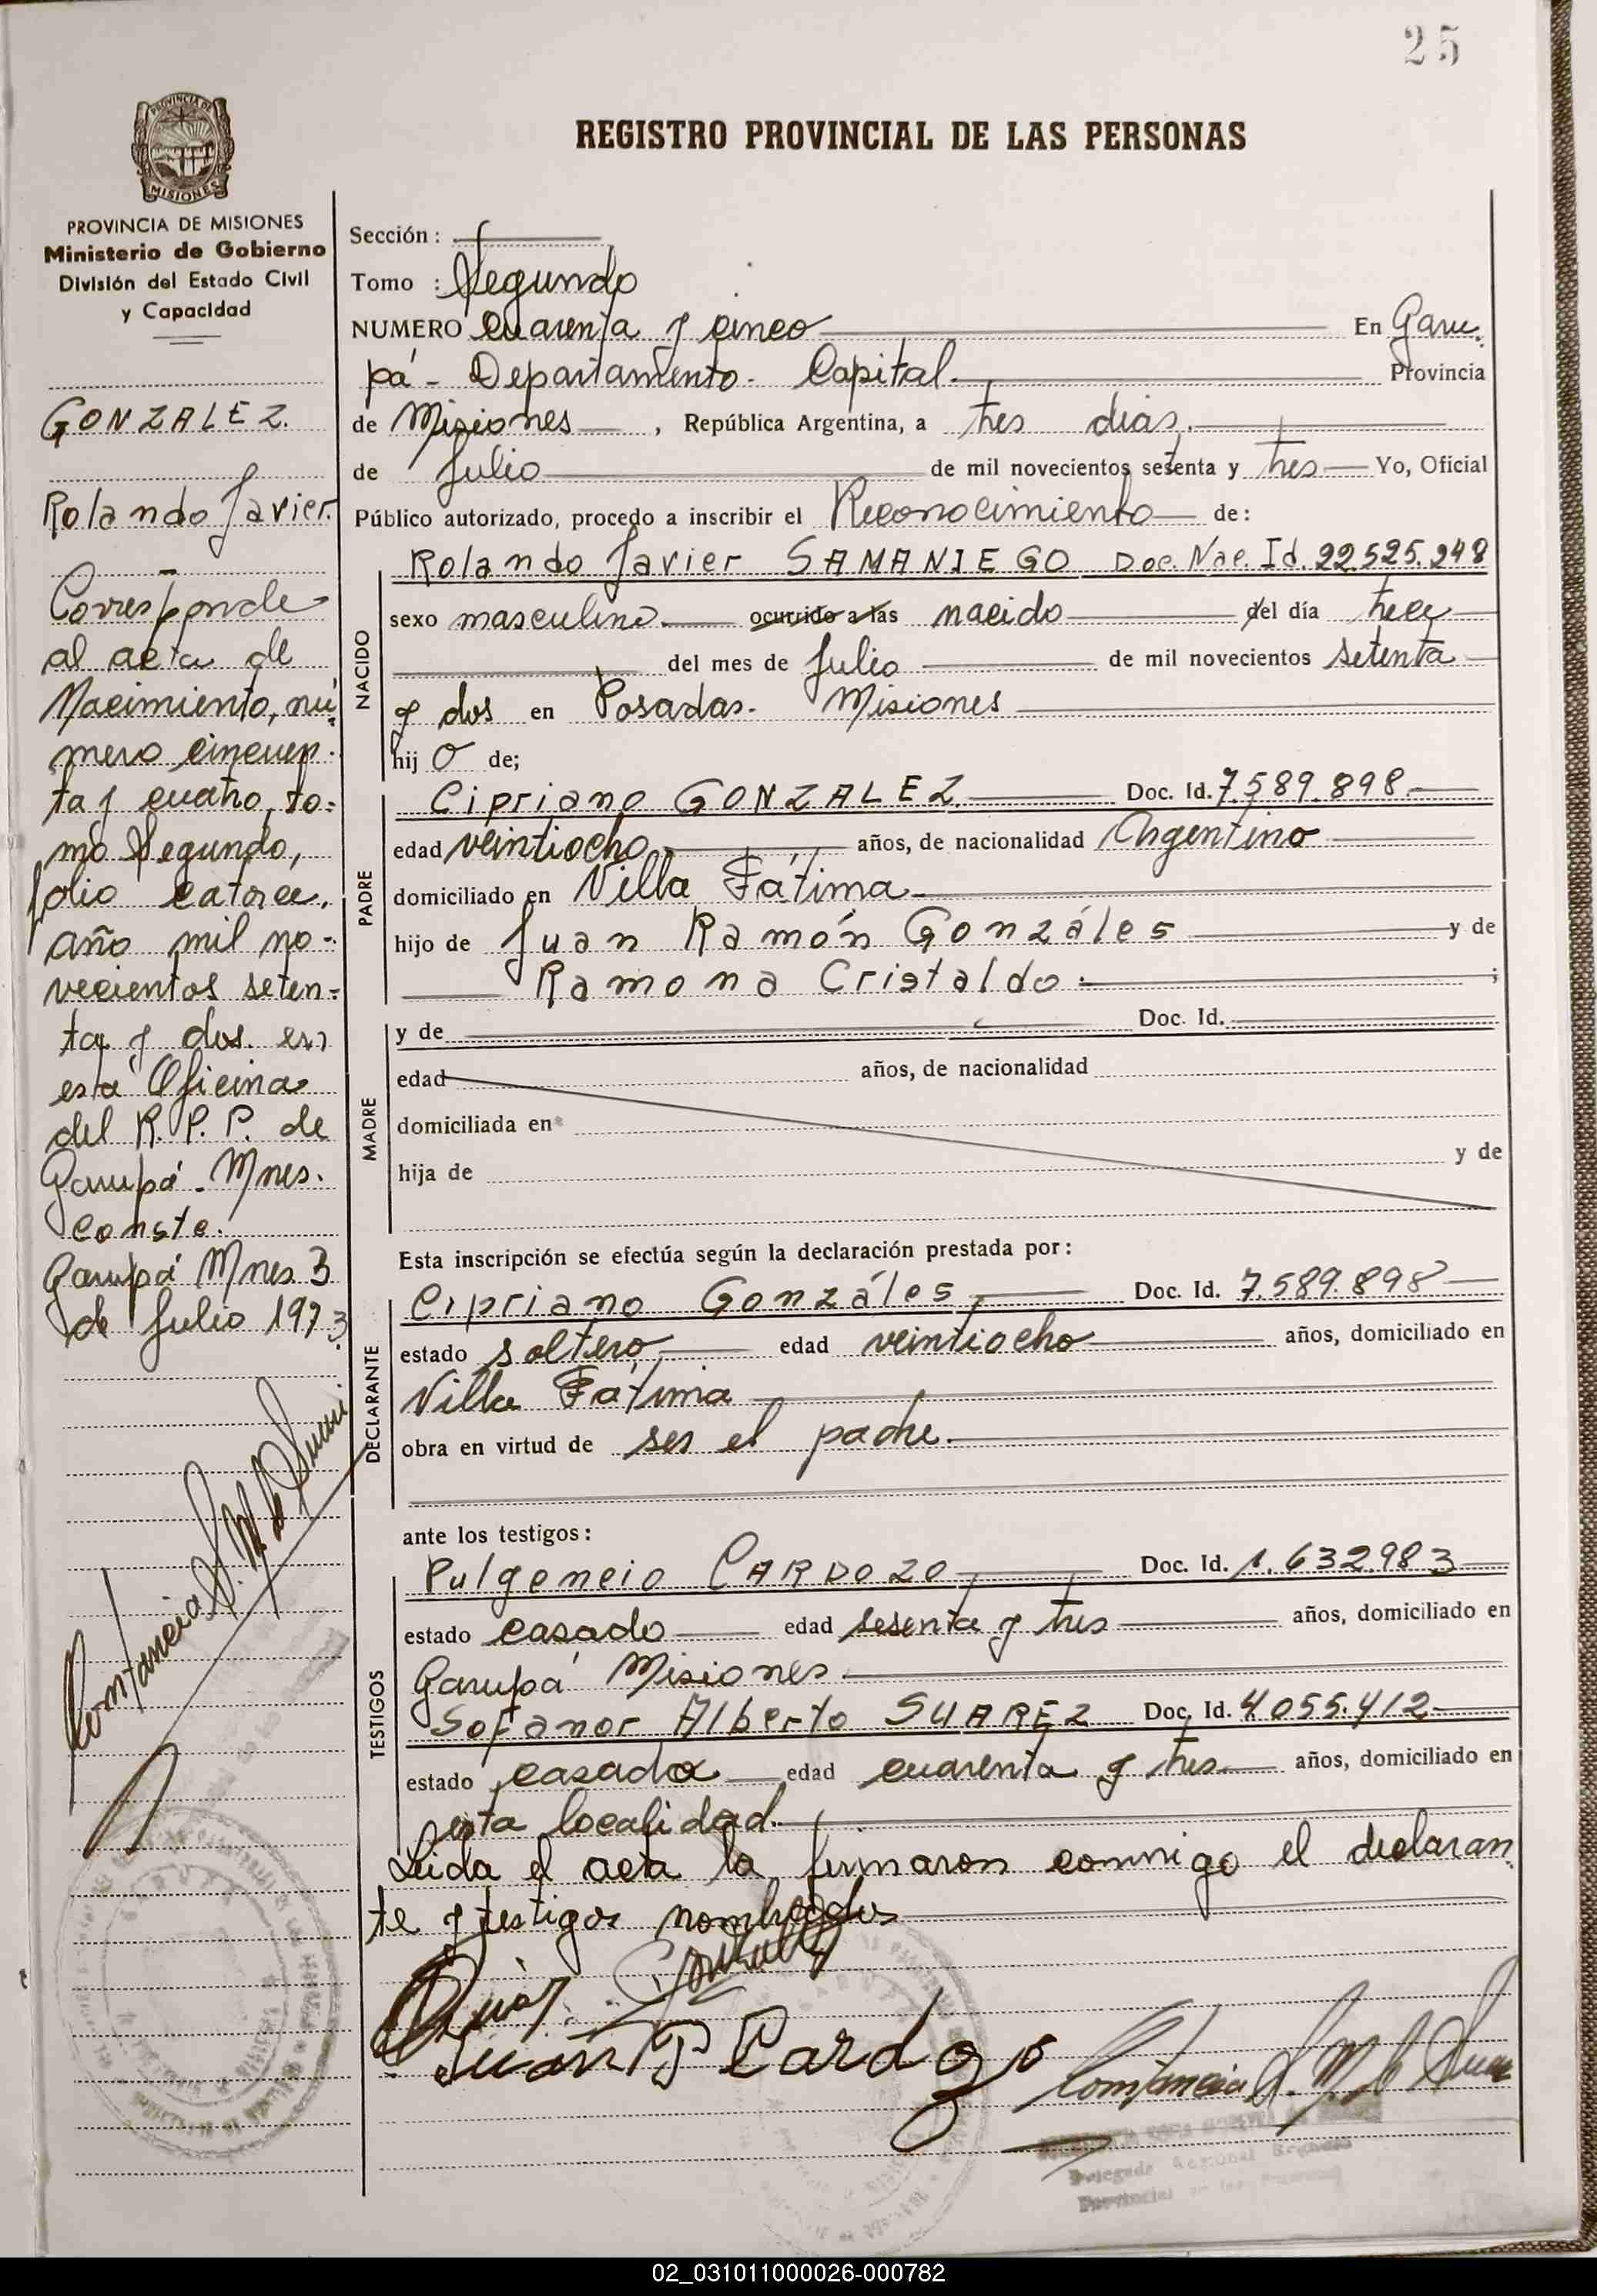 25
PROVINCIA DE
MISIONES
REGISTRO PROVINCIAL DE LAS PERSONAS
PROVINCIA DE MISIONES
Ministerio de Gobierno
División del Estado Civil
y Capacidad
GONZALEZ.
Rolando Javier.
Corresponde
al acta de
Nacimiento, nú-
mero cincuen-
ta y cuatro, to-
mo Segundo,
folio catorce,
año mil no-
vecientos seten-
ta y dos. en
esta Oficina
del R. P. P. de
Garupá - Mnes.
Conste.
Garupá Mnes 3
de Julio 1973
Sección :
Tomo : Segundo
NUMERO cuarenta y cinco En Garu-
pá - Departamento - Capital. Provincia
de Misiones , República Argentina, a tres dias.
de Julio de mil novecientos setenta y tres Yo, Oficial
Público autorizado, procedo a inscribir el Reconocimiento de:
NACIDO
Rolando Javier SAMANIEGO Doc. Nac. Id. 22.525.248
sexo masculino. ocurrido a las nacido del día trece
del mes de Julio de mil novecientos setenta
y dos en Posadas. Misiones
hij o de;
PADRE
Cipriano GONZALEZ. Doc. Id. 7.589.898.
edad veintiocho años, de nacionalidad Argentino
domiciliado en Villa Fátima
hijo de Juan Ramón Gonzáles y de
Ramona Cristaldo. ;
MADRE
y de Doc. Id.
edad años, de nacionalidad
domiciliada en
hija de y de
Esta inscripción se efectúa según la declaración prestada por:
DECLARANTE
Cipriano Gonzáles Doc. Id. 7.589.898
estado soltero edad veintiocho años, domiciliado en
Villa Fátima
obra en virtud de ser el padre.
ante los testigos:
TESTIGOS
Pulgencio CARDOZO Doc. Id. 1.632.983
estado casado edad sesenta y tres años, domiciliado en
Garupá Misiones
Sofanor Alberto SUAREZ Doc. Id. 4.055.412
estado casado edad cuarenta y tres años, domiciliado en
esta localidad.
Leida el acta la firmaron conmigo el declaran-
te y testigos nombrados
Juan P Cardozo
02_031011000026-000782